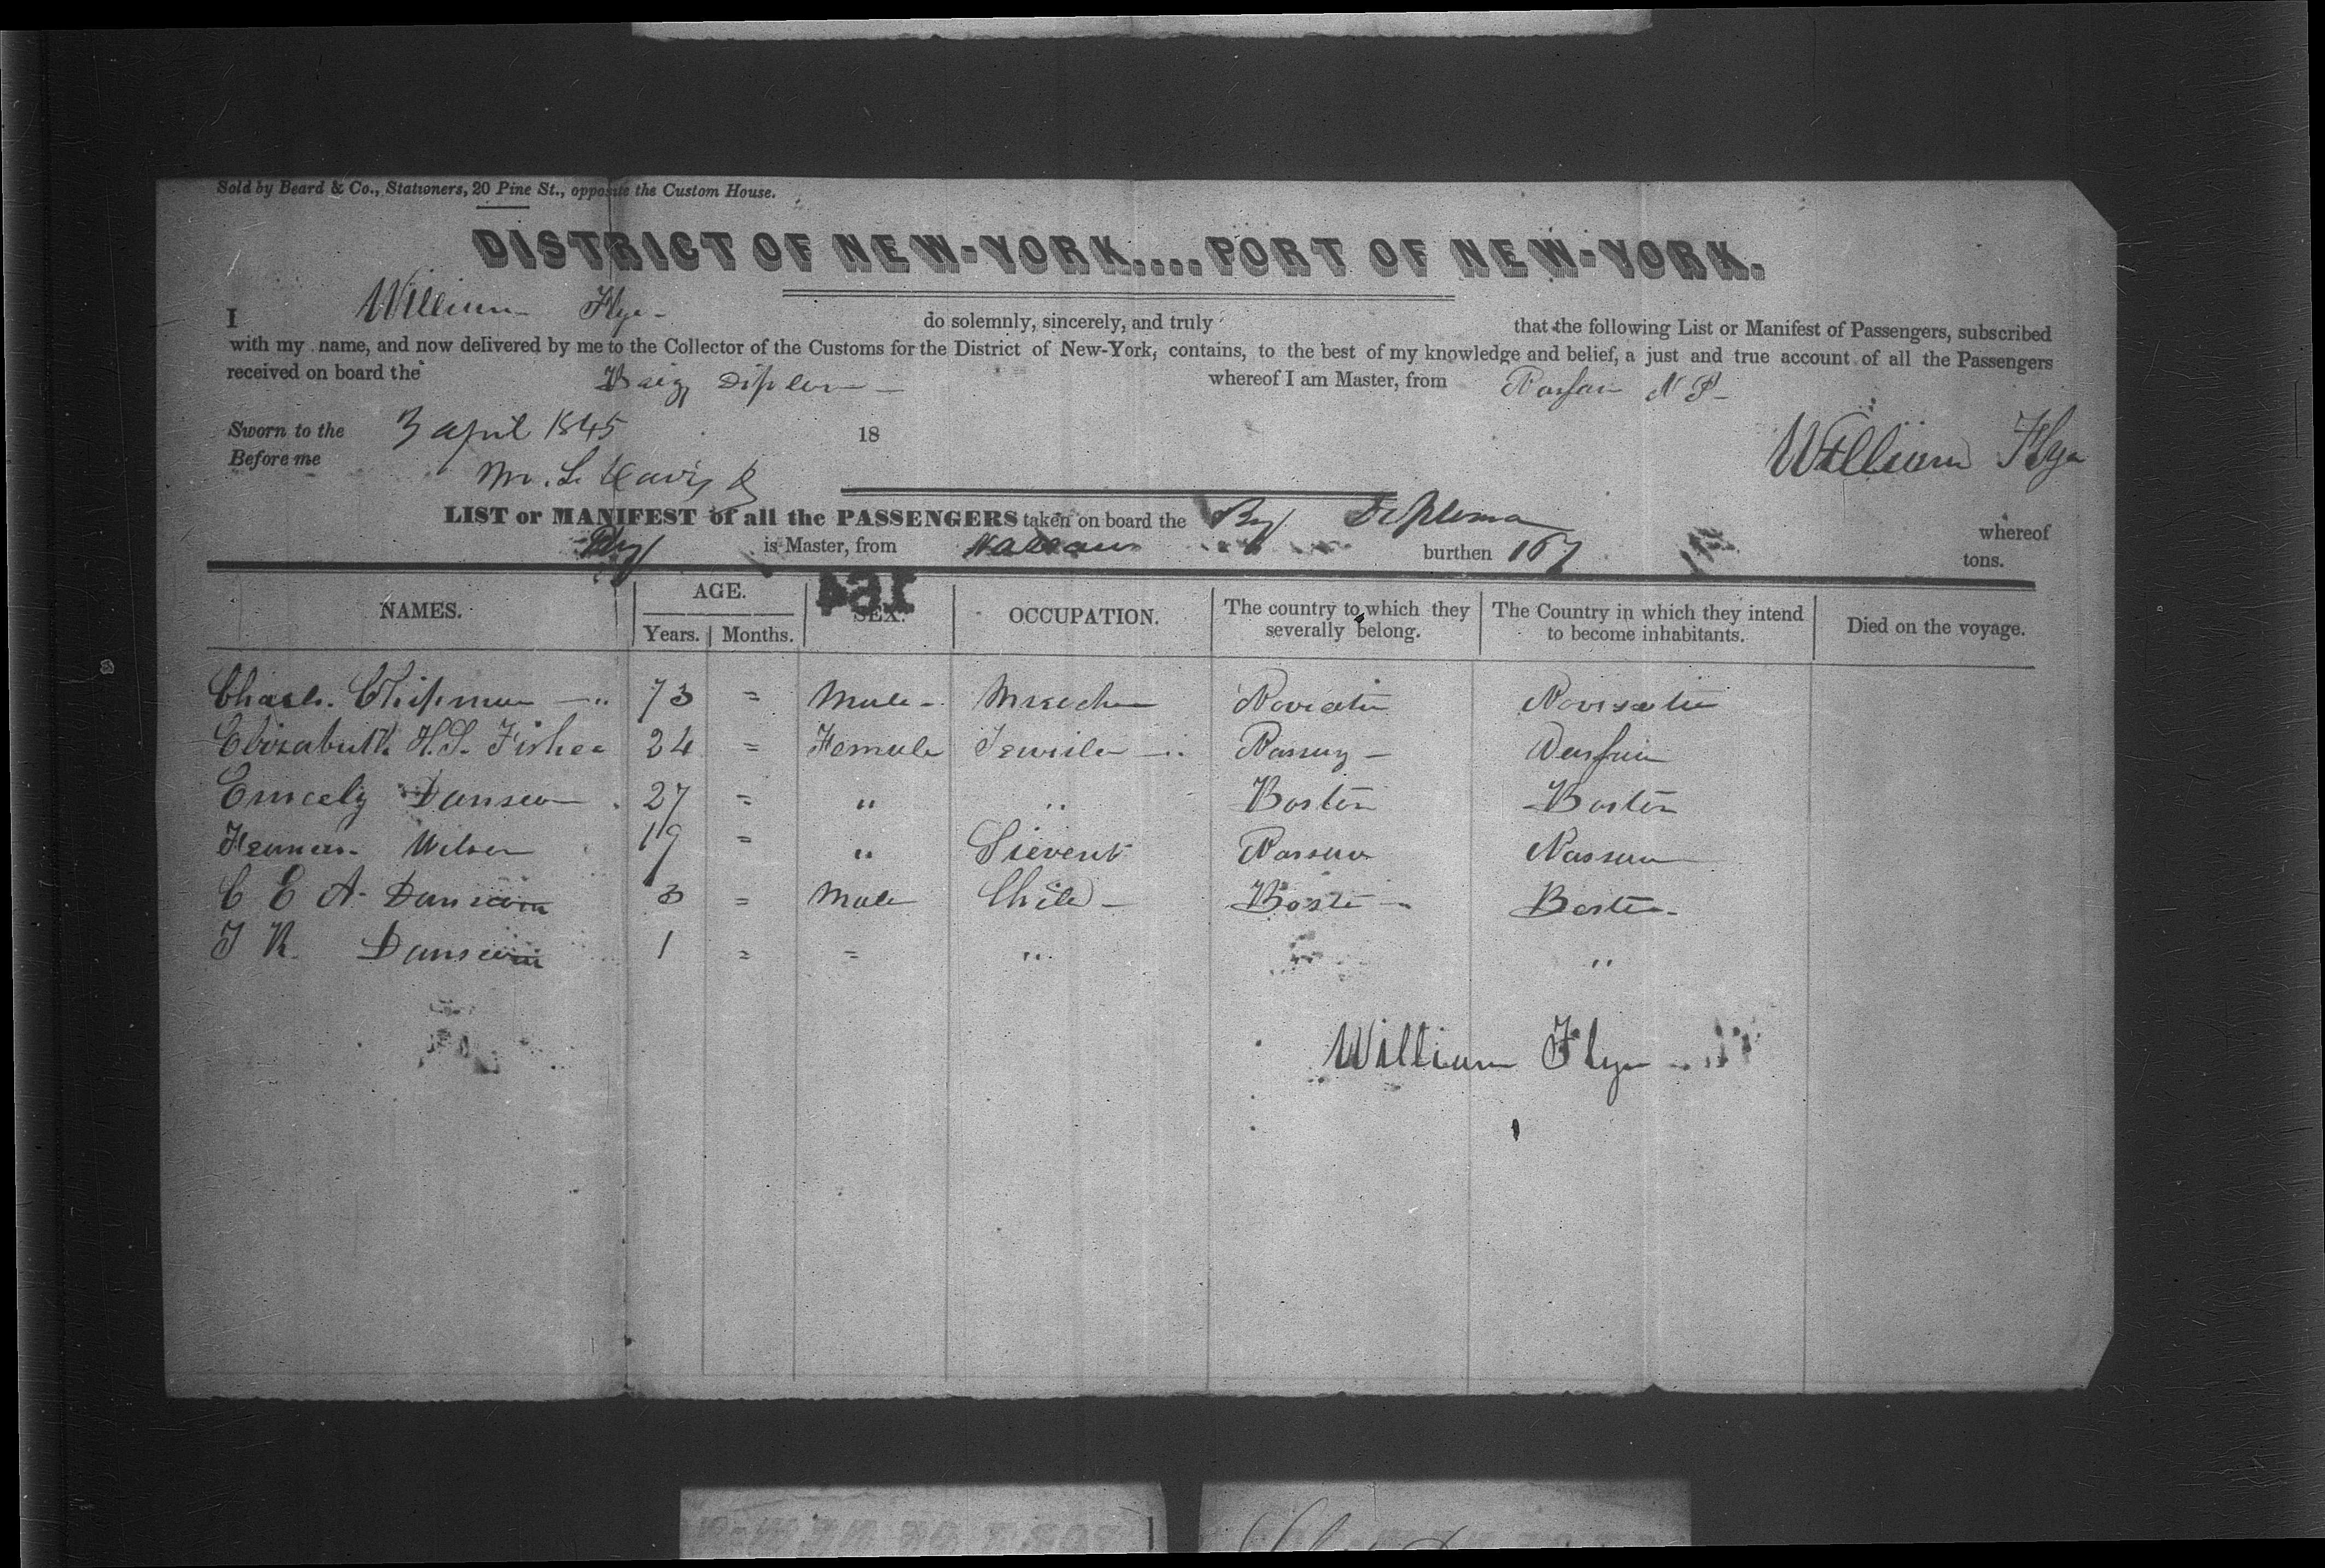 Sold by Beard & Co., Stationers, 20 Pine St., opposite the Custom House.
DISTRICT OF NEW-YORK....PORT OF NEW-YORK.
I William Flye do solemnly, sincerely, and truly that the following List or Manifest of Passengers, subscribed
with my name, and now delivered by me to the Collector of the Customs for the District of New-York, contains, to the best of my knowledge and belief, a just and true account of all the Passengers
received on board the Brig Diploma whereof I am Master, from Nassau N P
Sworn to the 3 april 1845 18
Before me
William Flye
LIST or MANIFEST of all the PASSENGERS taken on board the Brig Diploma whereof
is Master, from Nassau burthen 167 tons.
154
NAMES. AGE. SEX. OCCUPATION. The country to which they severally belong. The Country in which they intend to become inhabitants. Died on the voyage.
Years. Months.
Charls. Chipman 73 = Male
Elizabeth H.S. Fisher 24 = Female Nassau Nassau
Emeely 27 = " " Boston Boston
Wilson 19 = " Nassau Nassau
C E A 3 = Male Child Boston Boston
1 = = " "
William Flye